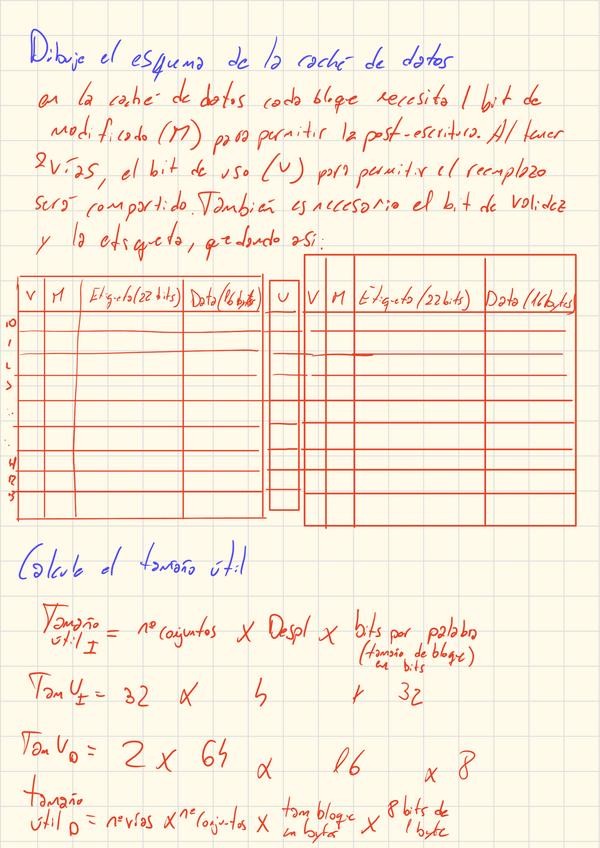 Dibuje el esquema de la caché de datos
en la caché de datos cada bloque necesita 1 bit de
modificado (M) para permitir la post-escritura. Al tener
2 vías, el bit de uso (U) para permitir el reemplazo
será compartido. También es necesario el bit de validez
y la etiqueta, quedando así:
V M Etiqueta (22 bits) Data (16 bytes) U V M Etiqueta (22 bits) Data (16 bytes)
0
1
2
3
Calcule el tamaño útil
Tamaño útil I = nº conjuntos X Despl X bits por palabra
(tamaño de bloque)
en bits
Tam U I = 32 X 4 X 32
Tam U D = 2 X 64 X 16 X 8
tamaño
útil D = nº vías X nº conjuntos X tam bloque en bytes X 8 bits de 1 byte